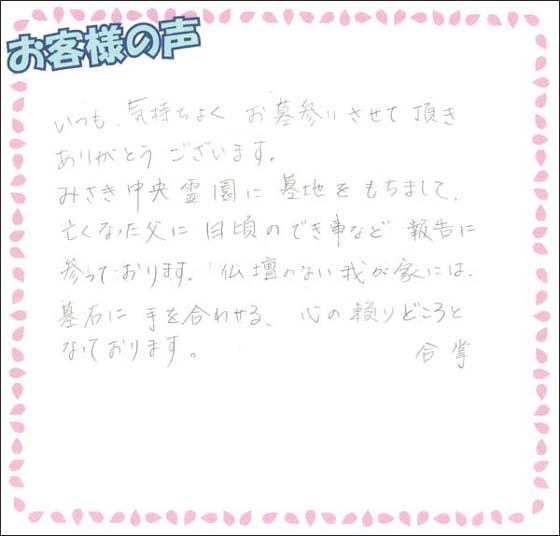 お客様の声
いつも、気持ちよく お墓参りさせて 頂き
ありがとう ございます。
みさき中央霊園に 墓地を もちまして、
亡くなった父に 日頃のでき事など 報告に
参っております。 仏壇のない 我が家には、
墓石に 手を合わせる、 心の頼りどころと
なっております。
合掌